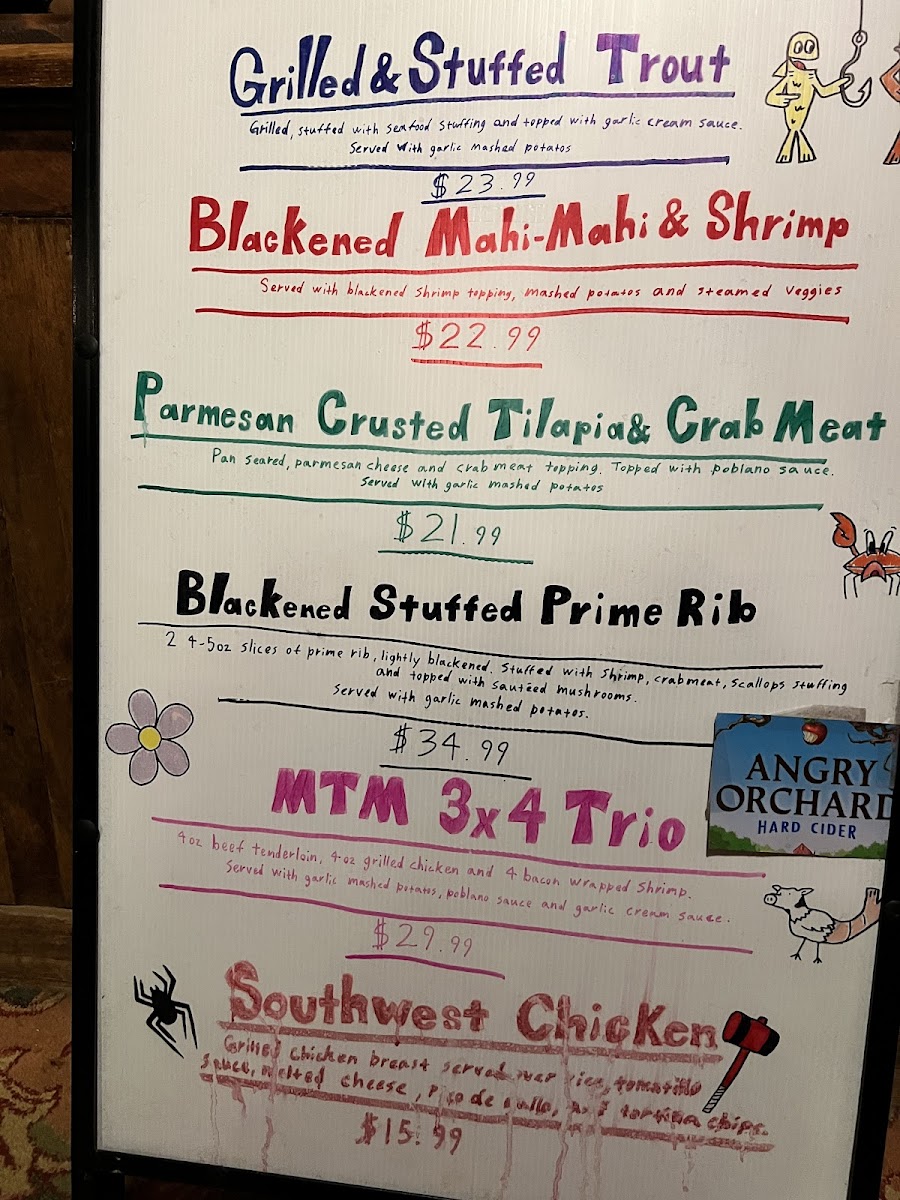 Grilled & Stuffed Trout
Grilled, stuffed with seafood stuffing and topped with garlic cream sauce.
Served with garlic mashed potatos
$23.99
Blackened Mahi-Mahi & Shrimp
Served with blackened shrimp topping, mashed potatos and steamed veggies
$22.99
Parmesan Crusted Tilapia & Crab Meat
Pan seared, parmesan cheese and crab meat topping. Topped with poblano sauce.
Served with garlic mashed potatos
$21.99
Blackened Stuffed Prime Rib
2 4-5oz slices of prime rib, lightly blackened. Stuffed with shrimp, crabmeat, scallops stuffing
and topped with sautéed mushrooms.
Served with garlic mashed potatos.
$34.99
ANGRY
ORCHARD
HARD CIDER
MTM 3x4 Trio
4oz beef tenderloin, 4oz grilled chicken and 4 bacon wrapped shrimp.
Served with garlic mashed potatos, poblano sauce and garlic cream sauce.
$29.99
Southwest Chicken
Grilled chicken breast served over rice, tomatillo
sauce, melted cheese, pico de gallo, and tortilla chips.
$15.99